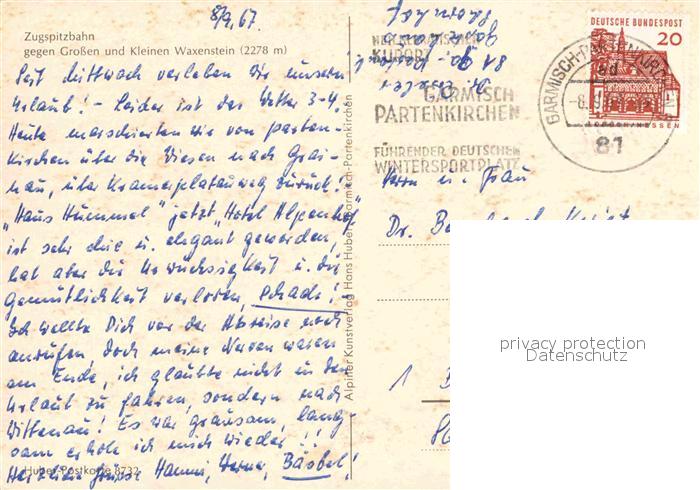 8/9.67
Zugspitzbahn
gegen Großen und Kleinen Waxenstein (2278 m)
Seit Mittwoch verleben wir unsern
Urlaub! - Leider ist das Wetter 3-4.
Heute marschierten wir von Parten-
kirchen über die Wiesen nach Grai-
nau, über Kramerplateauweg zurück!
"Haus Hummel" jetzt "Hotel Alpenhof"
ist sehr chic u. elegant geworden,
hat aber die Urwüchsigkeit u. die
Gemütlichkeit verloren, schade!
Ich wollte Dich vor der Abreise noch
anrufen, doch meine Nerven waren
am Ende, ich glaubte nicht in den
Urlaub zu fahren, sondern nach
Wittenau! Es war grausam, lang-
sam erhole ich mich wieder!!
Herzliche Grüsse Hanni, Werner, Bärbel!
Huber-Postkarte 8732
Alpiner Kunstverlag Hans Huber, Garmisch-Partenkirchen
HEILKLIMATISCHER
KURORT
GARMISCH
PARTENKIRCHEN
FÜHRENDER DEUTSCHER
WINTERSPORTPLATZ
GARMISCH-PARTENKIRCHEN
81
DEUTSCHE BUNDESPOST
20
LORSCH/HESSEN
Herrn u. Frau
Dr.
1 B
privacy protection
Datenschutz